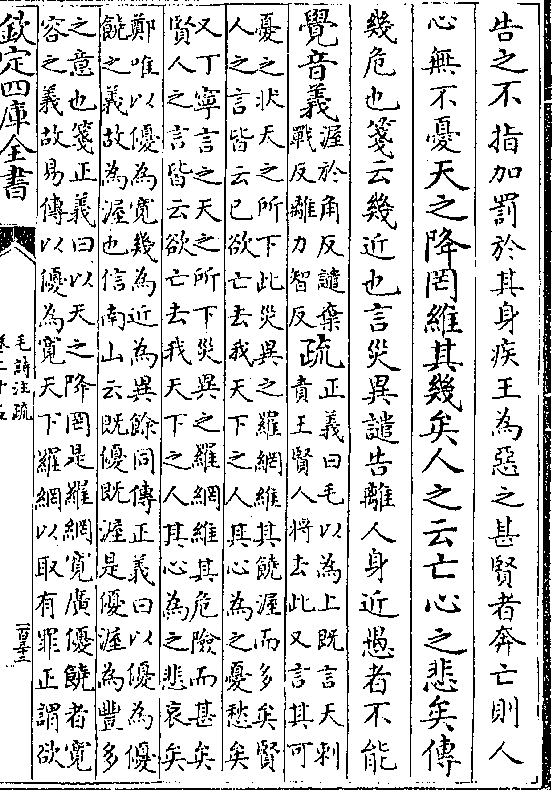 告之不指加罰於其身疾王為惡之甚賢者奔亡則人
心無不憂天之降罔維其幾矣人之云亡心之悲矣傳
幾危也箋云幾近也言災異譴告離人身近愚者不能
覺音義渥於角反譴棄
戰反離力智反疏正義曰毛以為上既言天刺
責王賢人將去此又言其可
憂之狀天之所下此災異之羅網維其饒渥而多矣賢
人之言皆云已欲亡去我天下之人其心為之憂愁矣
又丁寧言之天之所下災異之羅網維其危險而甚矣
賢人之言皆云欲亡去我天下之人其心為之悲哀矣
鄭唯以優為寬幾為近為異餘同傳正義曰以優為優
饒之義故為渥也信南山云既優既渥是優渥為豐多
之意也箋正義曰以天之降罔是羅網寬廣優饒者寬
容之義故易傳以優為寬天下羅網以取有罪正謂欲
欽定四庫全書
毛詩注疏